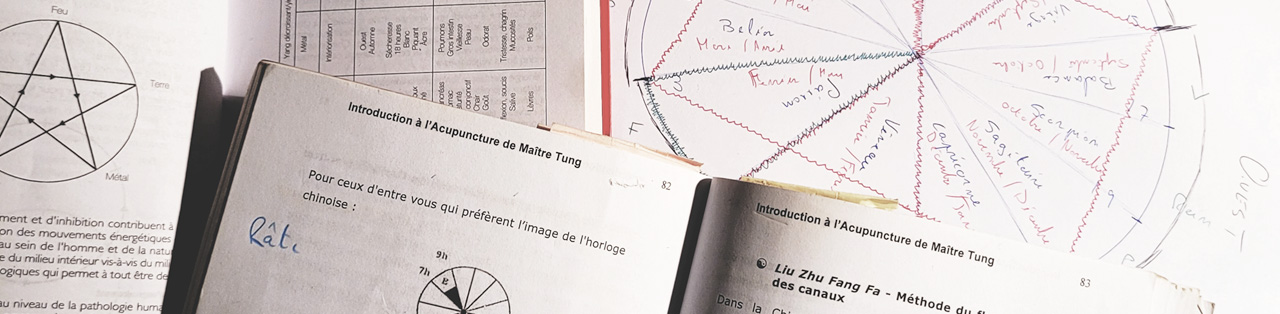 Feu
Terre
Métal
ment et d'inhibition contribuent à
on des mouvements énergétiques
au sein de l'homme et de la natu
e du milieu intérieur vis-à-vis du mil
ogiques qui permet à tout être de
au niveau de la pathologie huma
Yang décroissant/y
Métal
Intériorisation
Ouest
Automne
Sécheresse
18 heures
Blanc
Piquant
Âcre
Poumons
Gros intestin
Vieillesse
Peau
Odorat
Tristesse, chagrin
Mucosités
Poils
conjonctif
Chair
Goût
soucis
Salive
Lèvres
Introduction à l'Acupuncture de Maître Tung
82
Pour ceux d'entre vous qui préfèrent l'image de l'horloge
chinoise :
Rate
9h
7h
E
Introduction à l'Acupuncture de Maître Tung
83
Liu Zhu Fang Fa - Méthode du f
des canaux
Dans la Chi
Bélier
Mars / Avril
Février / Mars
Poisson
Verseau
Capricorne
Sagittaire
Novembre / Décembre
Scorpion
Octobre / Novembre
Balance
Septembre / Octobre
Vierge
7
9
OUEST